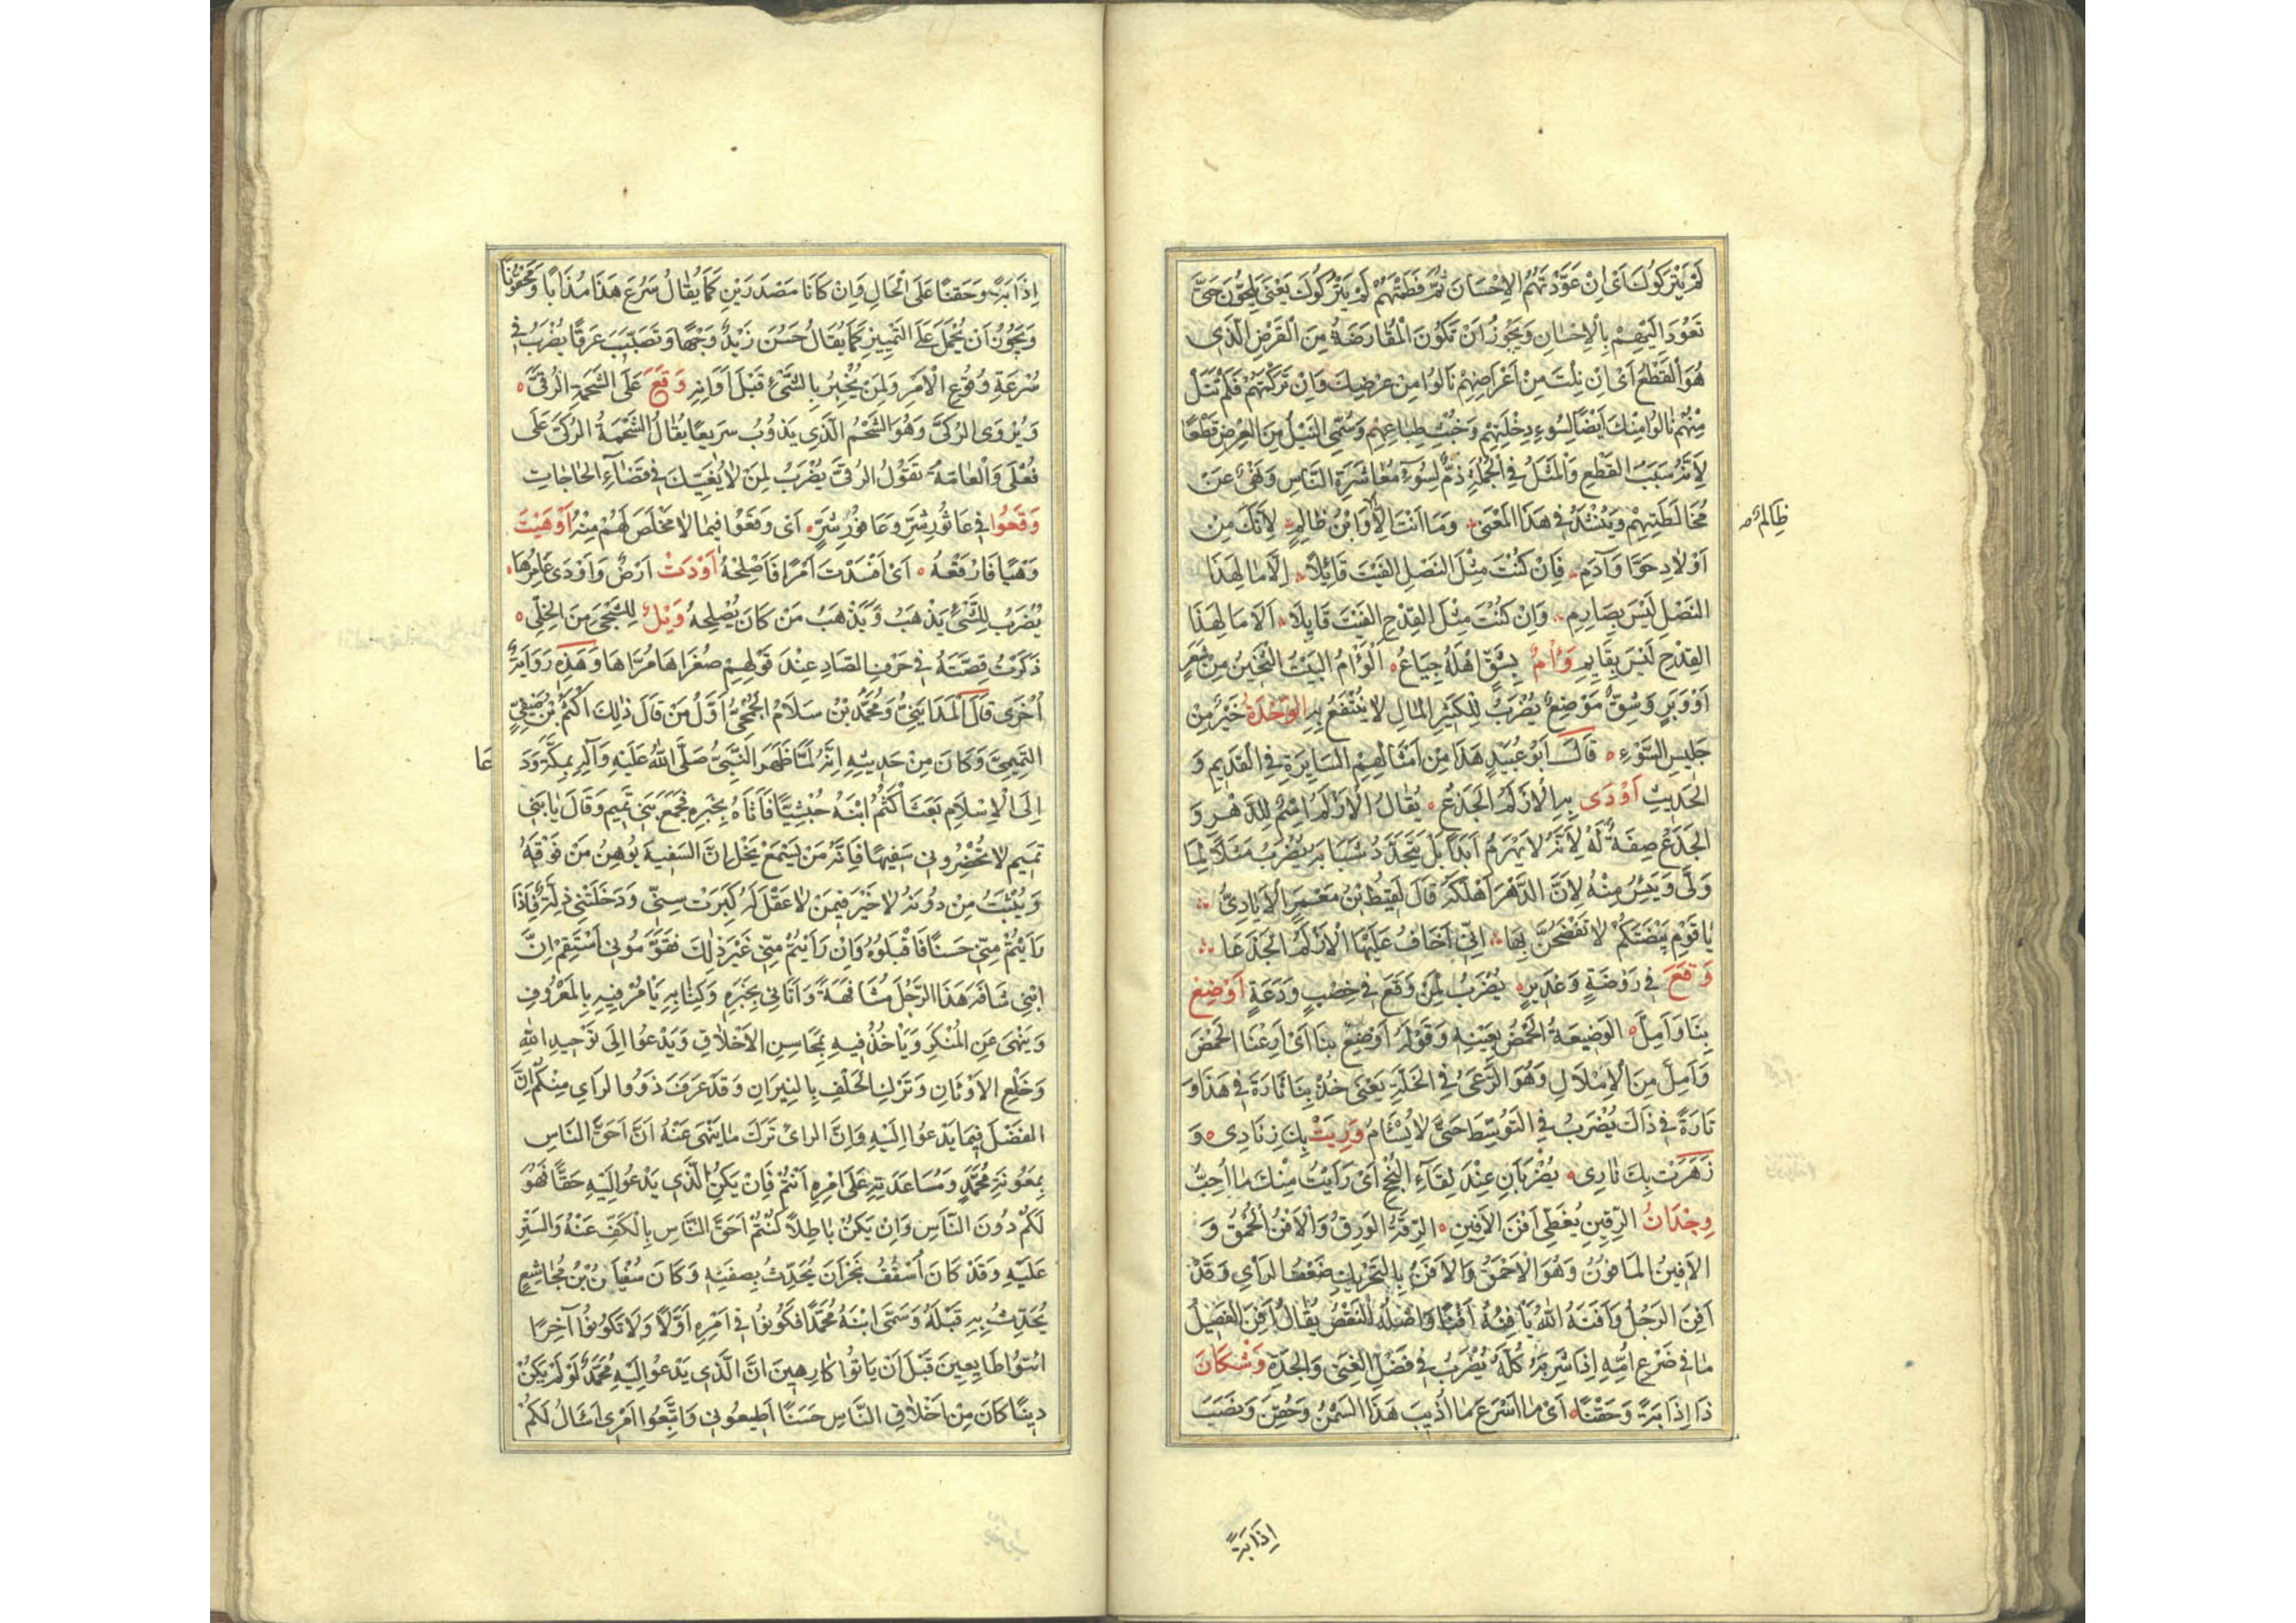 لَمْ يَتْرُكُوكَ اَىْ اِنْ عَوَّدْتَهُمُ الاِحْسَانَ ثُمَّ فَطَمْتَهُمْ لَمْ يَتْرُكُوكَ يَعْنِى يُلِحُّونَ حَتَّى
تَعُودَ اِلَيْهِمْ بِالْاِحْسَانِ وَيَجُوزُ اَنْ تَكُونَ الْمُقَارَضَةُ مِنَ الْقَرْضِ الَّذِى
هُوَ الْقَطْعُ اَىْ اِنْ نِلْتَ مِنْ اَعْرَاضِهِمْ نَالُوا مِنْ عِرْضِكَ وَاِنْ تَرَكْتَهُمْ فَلَمْ تَنَلْ
مِنْهُمْ نَالُوا مِنْكَ اَيْضًا لِسُوءِ دِخْلَتِهِمْ وَخُبْثِ طِبَاعِهِمْ وَسُمِّىَ النَّيْلُ مِنَ الْعِرْضِ قَطْعًا
لِاَنَّهُ سَبَبُ القَطْعِ وَالْمَثَلُ فِى الْجُمْلَةِ ذَمٌّ لِسُوءِ مُعَاشَرَةِ النَّاسِ وَنَهْىٌ عَنْ
مُخَالَطَتِهِمْ وَيُنْشَدُ فِى هَذَا الْمَعْنَى وَمَا اَنْتَ اِلَّا وَابْنُ ظَالِمٍ لِاَنَّكَ مِن
ظَالِمٌ صح
اَوْلَادِ حَوَّا وَآدَمِ فَاِنْ كُنْتَ مِثْلَ النَصْلِ الفَيْتَ قَائِلًا اِلَّا مَا لِهَذَا
النَصْلِ لَيْسَ بِصَارِمِ وَاِنْ كُنْتَ مِثْلَ القِدْحِ الفَيْتَ قَايِلًا اَلَا مَا لِهَذَا
القِدْحِ لَيْسَ بِقَايِمِ وَاْمٌ بِشِقٍّ اَهْلُهُ جِيَاعُ ه الْوَاْمُ البَيْتُ الثَخِينُ مِنْ شَعَرٍ
اَوْ وَبَرٍ وَشِقٌّ مَوْضِعٌ يُضْرَبُ لِلْكَثِيرِ المَالِ لَا يُنْتَفَعُ بِهِ الوَحْدَةُ خَيْرٌ مِنْ
جَلِيسِ السَّوْءِ ه قَالَ اَبُو عُبَيْدٍ هَذَا مِنْ اَمْثَالِهِمِ السَّايِرَةِ فِى القَدِيمِ وَ
الحَدِيثِ اَوْدَى بِهِ الْاَزْلَمُ الجَذَعُ ه يُقَالُ الْاَزْلَمُ اسْمٌ لِلدَّهْرِ وَ
الجَذَعُ صِفَةٌ لَهُ لِاَنَّهُ لَا يَهْرَمُ اَبَدًا بَلْ يَتَجَدَّدُ شَبَابُهُ يُضْرَبُ مَثَلًا لِمَا
وَلَّى وَيُئِسَ مِنْهُ لِاَنَّ الدَّهْرَ اَهْلَكَهُ قَالَ لَقِيطُ بْنُ مَعْمَرٍ الْاَيَادِىُّ
يَا قَوْمِ بَيْضَتَكُمْ لَا تُفْضَحُنَّ بِهَا اِنِّى اَخَافُ عَلَيْهَا الْاَزْلَمَ الجَذَعَا
وَقَعَ فِى رَوْضَةٍ وَغَدِيرٍ ه يُضْرَبُ لِمَنْ وَقَعَ فِى خِصْبٍ وَدَعَةٍ اَوْضِعْ
بِنَا وَاَمِلَّ ه الوَضِيعَةُ الحَمْضُ بِعَيْنِهِ وَقَوْلُهُ اَوْضِعْ بِنَا اَىْ اَرْعِنَا الحَمْضَ
وَاَمِلَّ مِنَ الْاِمْلَالِ وَهُوَ الرَّعْىُ فِى الخَلَّةِ يَعْنِى خُذْ بِنَا تَارَةً فِى هَذَا وَ
تَارَةً فِى ذَاكَ يُضْرَبُ فِى التَوَسُّطِ حَتَّى لَا يُسْأَمَ وَرِيَتْ بِكَ زِنَادِى ه وَ
زَهَرَتْ بِكَ نَارِى ه يُضْرَبَانِ عِنْدَ لِقَاءِ النُّجْحِ اَىْ رَاَيْتُ مِنْكَ مَا اُحِبُّ
وِجْدَانُ الرِّقِينِ يُغَطِّى اَفْنَ الْاَفِينِ ه الرِّقَةُ الوَرِقُ وَالْاَفْنُ الْحُمْقُ وَ
الْاَفِينُ الْمَافُونُ وَهُوَ الْاَحْمَقُ وَالْاَفَنُ بِالتَحْرِيكِ ضَعْفُ الرَاْىِ وَقَدْ
اَفِنَ الرَجُلُ وَاَفَنَهُ اللهُ يَاْفِنُهُ اَفْنًا وَاَصْلُهُ النَقْصُ يُقَالُ اَفِنَ الفَصِيلُ
مَا فِى ضَرْعِ اُمِّهِ اِذَا شَرِبَهُ كُلَّهُ يُضْرَبُ فِى فَضْلِ الْغِنَى وَالجِدَةِ وَشْكَانَ
ذَا اِذَابَةً وَحَقْنًا ه اَىْ مَا اَسْرَعَ مَا اُذِيبَ هَذَا السَّمْنُ وَحُقِنَ وَنَصَبَ
اِذَابَةً
اِذَابَةً وَحَقْنًا عَلَى الْحَالِ وَاِنْ كَانَا مَصْدَرَيْنِ كَمَا يُقَالُ سَرُعَ هَذَا مُذَابًا وَمَحْقُونًا
وَيَجُوزُ اَنْ يُحْمَلَ عَلَى التَّمْيِيزِ كَمَا يُقَالُ حَسُنَ زَيْدٌ وَجْهًا وَتَصَبَّبَ عَرَقًا يُضْرَبُ فِى
سُرْعَةِ وُقُوعِ الْاَمْرِ وَلِمَنْ يُخْبِرُ بِالشَّىْءِ قَبْلَ اَوَانِهِ وَقَعَ عَلَى الشَّحْمَةِ الرُقَّى ه
وَيُرْوَى الرُكَّى وَهُوَ الشَّحْمُ الَّذِى يَذُوبُ سَرِيعًا يُقَالُ الشَّحْمَةُ الرُكَّى عَلَى
فُعْلَى وَالْعَامَّةُ تَقُولُ الرُقَّى يُضْرَبُ لِمَنْ لَا يُعَنِّيكَ فِى قَضَاءِ الْحَاجَاتِ
وَقَعُوا فِى عَاثُورِ شَرٍّ وَعَافُورِ شَرٍّ ه اَىْ وَقَعُوا فِيمَا لَا مَخْلَصَ لَهُمْ مِنْهُ اَوْهَيْتَ
وَهْيًا فَارْقَعْهُ ه اَىْ اَفْسَدْتَ اَمْرًا فَاَصْلِحْهُ اَوْدَتْ اَرْضٌ وَاَوْدَى عَامِرُهَا ه
يُضْرَبُ لِلشَّىْءِ يَذْهَبُ وَيَذْهَبُ مَنْ كَانَ يُصْلِحُهُ وَيْلٌ لِلشَّجِىِّ مِنَ الخَلِىِّ ه
ذَكَرْتُ قِصَّتَهُ فِى حَرْفِ الصَّادِ عِنْدَ قَوْلِهِمْ صُغْرَاهَا مُرَّاهَا وَهَذِهِ رِوَايَةٌ
اُخْرَى قَالَ الْمَدَايِنِىُّ وَمُحَمَّدُ بْنُ سَلَامٍ الْجُمَحِىُّ اَوَّلُ مَنْ قَالَ ذَلِكَ اَكْثَمُ بْنُ صَيْفِىٍّ
التَّمِيمِىُّ وَكَانَ مِنْ حَدِيثِهِ اِنَّهُ لَمَّا ظَهَرَ النَّبِىُّ صَلَّى اللهُ عَلَيْهِ وَآلِهِ بِمَكَّةَ وَدَ
عَا
اِلَى الْاِسْلَامِ بَعَثَ اَكْثَمُ ابْنَهُ حُبْشِيًّا فَاَتَاهُ بِخَبَرِهِ فَجَمَعَ بَنِى تَمِيمٍ وَقَالَ يَا بَنِى
تَمِيمٍ لَا تُحْضِرُونِى سَفِيهًا فَاِنَّهُ مَنْ يَسْمَعْ يَخَلْ اِنَّ السَفِيهَ يُوهِنُ مَنْ فَوْقَهُ
وَيُثَبِّتُ مِنْ دُونَهُ لَا خَيْرَ فِيمَنْ لَا عَقْلَ لَهُ كَبِرَتْ سِنِّى وَدَخَلَتْنِى ذِلَّةٌ فَاِذَا
رَاَيْتُمْ مِنِّى حَسَنًا فَاقْبَلُوهُ وَاِنْ رَاَيْتُمْ مِنِّى غَيْرَ ذَلِكَ فَقَوِّمُونِى اَسْتَقِمْ اِنَّ
ابْنِى شَافَهَ هَذَا الرَّجُلَ مُشَافَهَةً وَاَتَانِى بِخَبَرِهِ وَكِتَابِهِ يَامُرُ فِيهِ بِالْمَعْرُوفِ
وَيَنْهَى عَنِ الْمُنْكَرِ وَيَاْخُذُ فِيهِ بِمَحَاسِنِ الْاَخْلَاقِ وَيَدْعُوا اِلَى تَوْحِيدِ اللهِ
وَخَلْعِ الْاَوْثَانِ وَتَرْكِ الْحَلْفِ بِالنِيرَانِ وَقَدْ عَرَفَ ذَوُوا لرَاىِ مِنْكُمْ اِنَّ
الفَضْلَ فِيمَا يَدْعُوا اِلَيْهِ وَاِنَّ الرَاىَ تَرْكَ مَا يَنْهَى عَنْهُ اَنَّ اَحَقَّ النَّاسِ
بِمَعُونَةِ مُحَمَّدٍ وَمُسَاعَدَتِهِ عَلَى اَمْرِهِ اَنْتُمْ فَاِنْ يَكُنِ الَّذِى يَدْعُوا اِلَيْهِ حَقًّا فَهُوَ
لَكُمْ دُونَ النَّاسِ وَاِنْ يَكُنْ بَاطِلًا كُنْتُمْ اَحَقَّ النَّاسِ بِالْكَفِّ عَنْهُ وَالسَّتْرِ
عَلَيْهِ وَقَدْ كَانَ اُسْقُفُّ نَجْرَانَ يُحَدِّثُ بِصِفَتِهِ وَكَانَ سُفْيَانُ بْنُ مُجَاشِعٍ
يُحَدِّثُ بِهِ قَبْلَهُ وَسَمَّى ابْنَهُ مُحَمَّدًا فَكُونُوا فِى اَمْرِهِ اَوَّلًا وَلَا تَكُونُوا آخِرًا
ائتُوا طَايِعِينَ قَبْلَ اَنْ يَاتُوا كَارِهِينَ اِنَّ الَّذِى يَدْعُوا اِلَيْهِ مُحَمَّدٌ لَوْ لَمْ يَكُنْ
دِينًا كَانَ مِنْ اَخْلَاقِ النَّاسِ حَسَنًا اَطِيعُونِى وَاتَّبِعُوا اَمْرِى اَسْاَلُ لَكُمْ